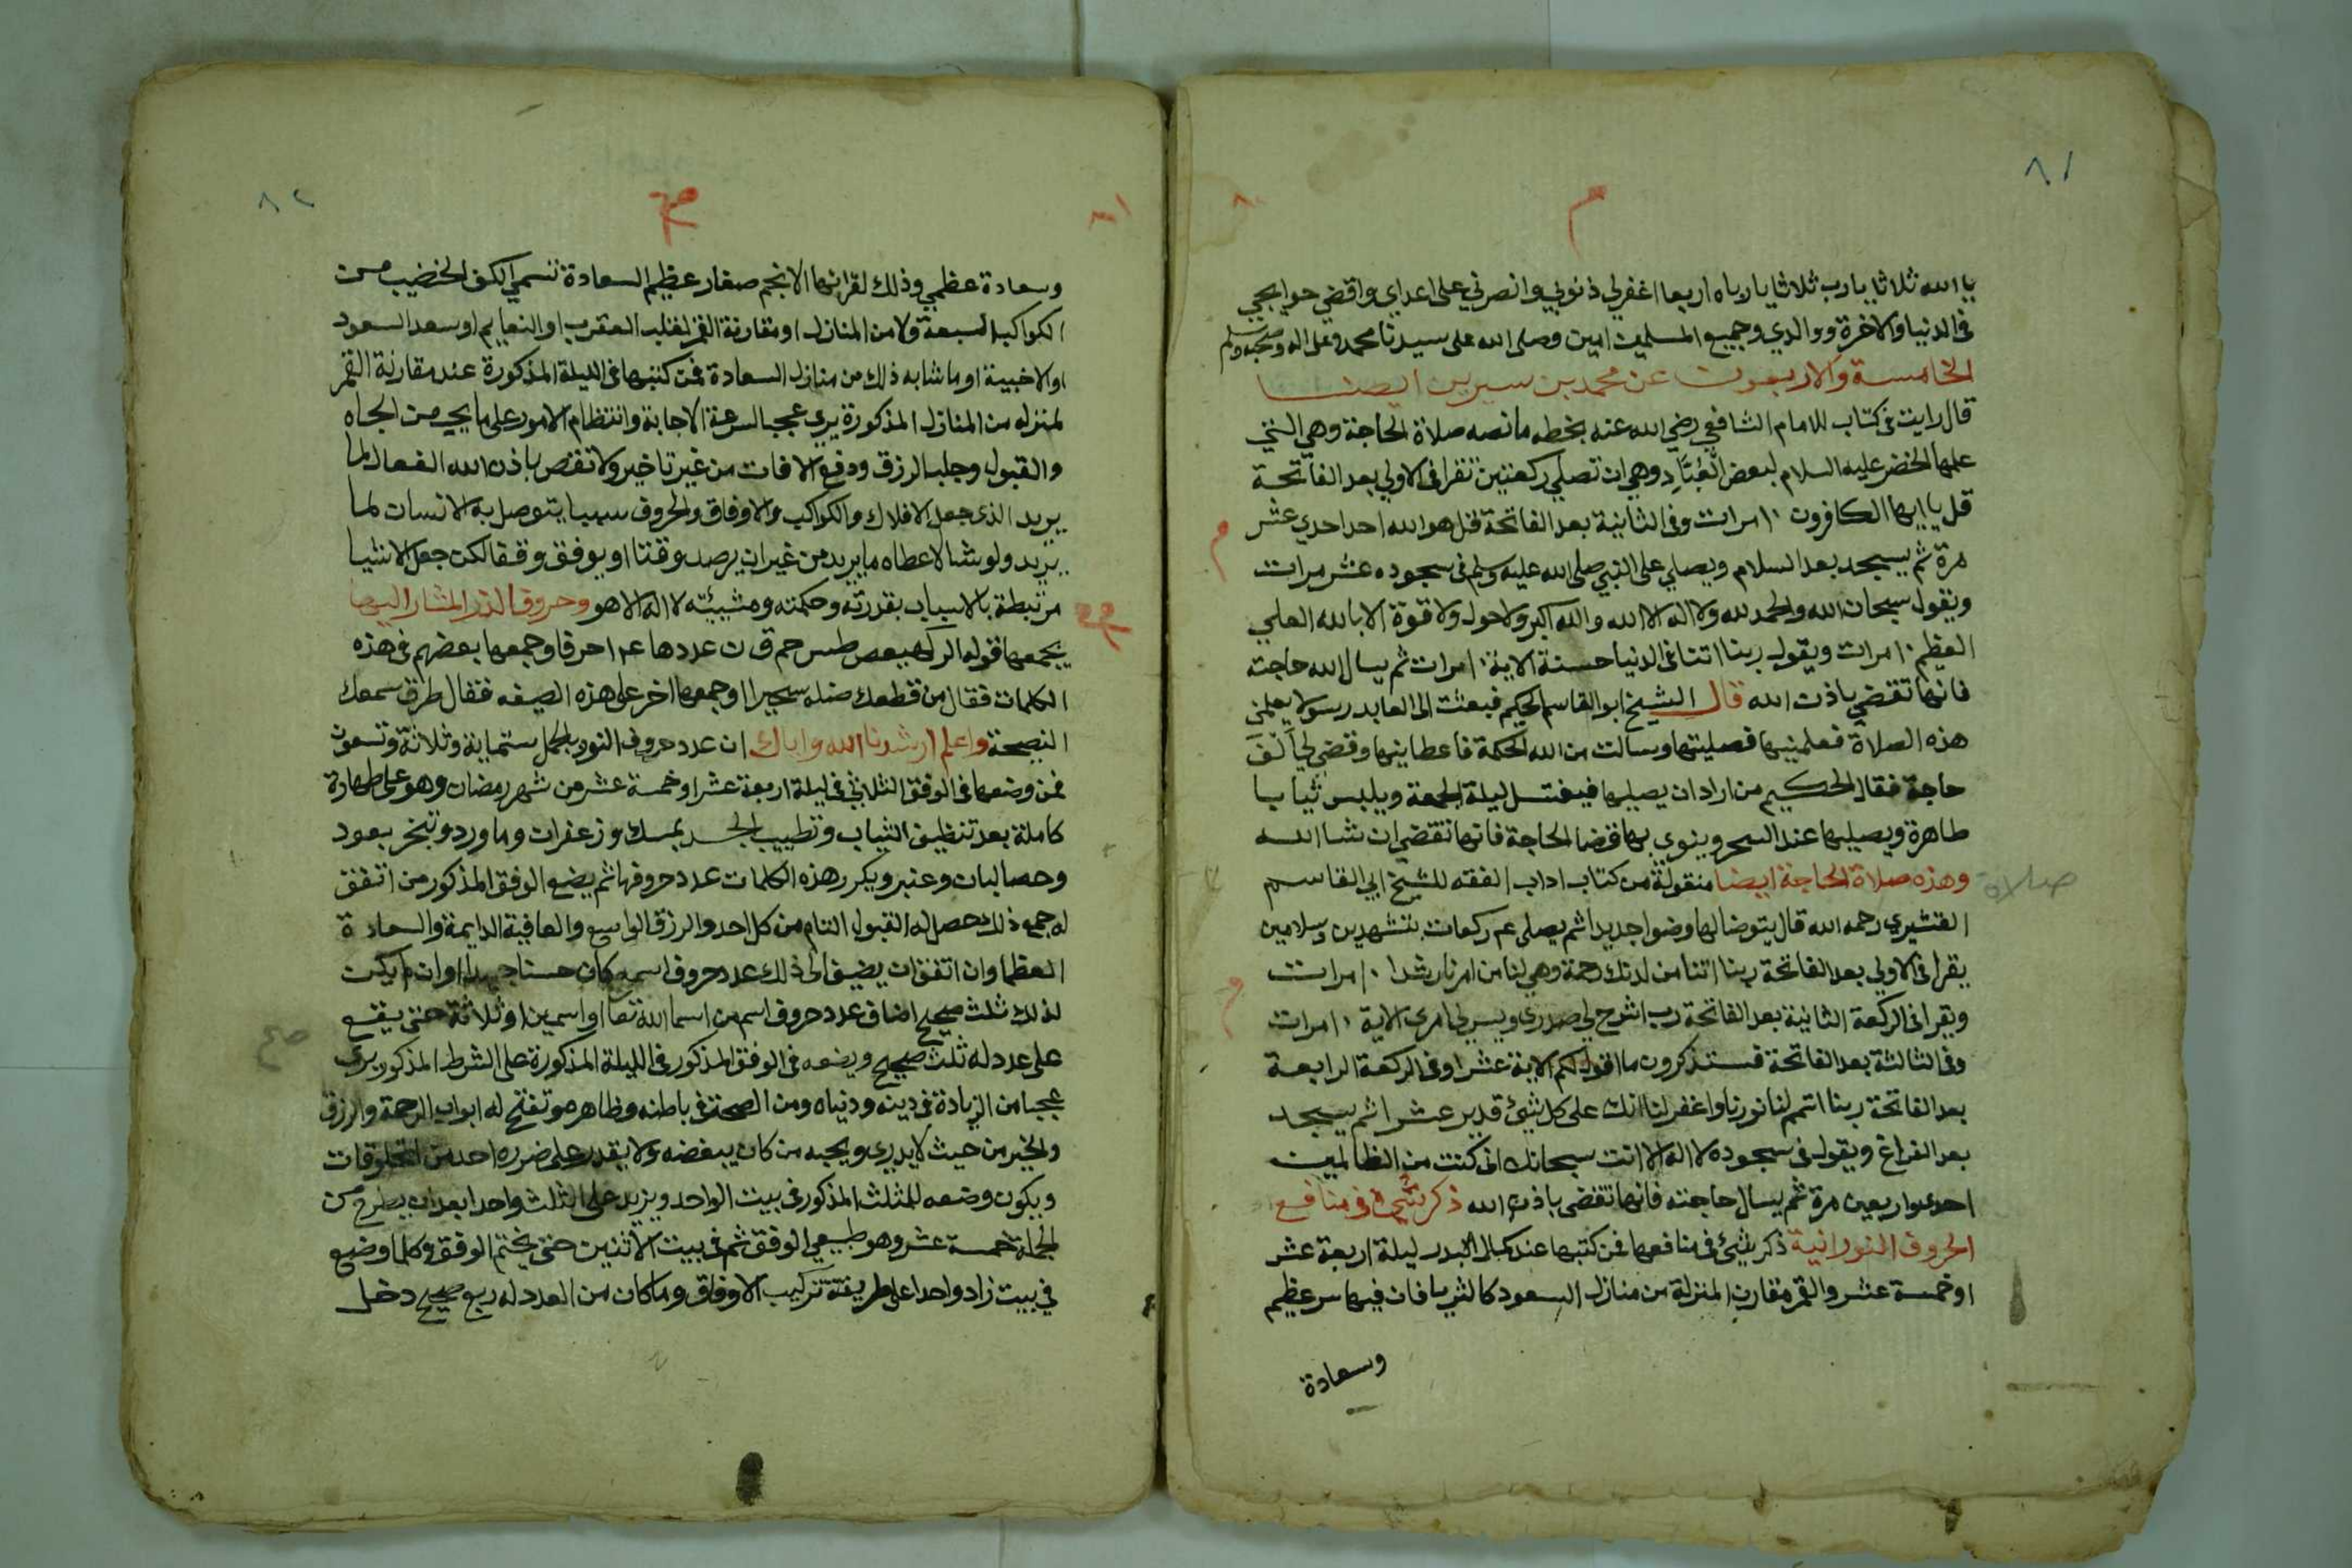 ٨١
م
٨٠
يا الله ثلاثا يا رب ثلاثا يا رباه اربعا اغفرلي ذنوبي وانصرني على اعداي واقضي حوايجي
في الدنيا والاخرة ووالدي وجميع المسلمين امين وصلى الله على سيدنا محمد وعلى اله وصحبه وسلم
الخامسة والاربعون عن محمد بن سيرين ايضا
قال رايت في كتاب للامام الشافعي رضي الله عنه بخطه ما نصه صلاة الحاجة وهي التي
علمها الخضر عليه السلام لبعض العُبَّاد وهي ان تصلي ركعتين تقرا في الاولي بعد الفاتحة
قل يا ايها الكافرون ١٠ مرات وفي الثانية بعد الفاتحة قل هو الله احد احدي عشر
مرة ثم يسجد بعد السلام ويصلي على النبي صلى الله عليه وسلم في سجوده عشر مرات
ويقول سبحان الله والحمد لله ولا اله الا الله والله اكبر ولا حول ولا قوة الا بالله العلي
العظيم ١٠ مرات ويقول ربنا اتنا في الدنيا حسنة الاية ١٠ مرات ثم يسال الله حاجته
فانها تقضي باذن الله قال الشيخ ابو القاسم الحكيم فبعثت الى العابد رسولا يعلمني
هذه الصلاة فعلمنيها فصليتها وسالت من الله الحكمة فاعطانيها وقضى لي الف
حاجة فقال الحكيم من اراد ان يصليها فيغتسل ليلة الجمعة ويلبس ثيابا
طاهرة ويصليها عند السحر وينوي بها قضا الحاجة فانها تقضي ان شا الله
وهذه صلاة الحاجة ايضا منقولة من كتاب اداب الفقه للشيخ ابي القاسم
صلاة
القشيري رحمه الله قال يتوضا لها وضوا جديدا ثم يصلى عم ركعات بتشهدين وسلامين
يقرا في الاولي بعد الفاتحة ربنا اتنا من لدنك رحمة وهي لنا من امرنا رشدا ١٠ مرات
ويقرا في الركعة الثانية بعد الفاتحة رب اشرح لي صدري ويسر لي امري الاية ١٠ مرات
وفي الثالثة بعد الفاتحة فستذكرون ما اقول لكم الاية عشرا وفي الركعة الرابعة
بعد الفاتحة ربنا اتمم لنا نورنا واغفر لنا انك على كل شيئ قدير عشرا ثم يسجد
بعد الفراغ ويقول في سجوده لا اله الا انت سبحانك اني كنت من الظالمين
احد واربعين مرة ثم يسال حاجته فانها تقضى باذن الله ذكر شيئ في منافع
الحروف النورانية ذكر شيئ في منافعها فمن كتبها عند كمال البدر ليلة اربعة عشر
او خمسة عشر والقمر مقارن لمنزلة من منازل السعود كالثريا فان فيها سر عظيم
وسعادة
٨٢
صح
٨١
وسعادة عظمي وذلك لقرانها الانجم صغار عظيم السعادة تسمي الكف الخضيب من
الكواكب السبعة ولا من المنازل او مقارنة القمر لقلب العقرب او النعايم او سعد السعود
او الاخبية او ما شابه ذلك من منازل السعادة فمن كتبها في الليلة المذكورة عند مقارنة القمر
لمنزله من المنازل المذكورة يرى عجبا لسرعة الاجابة وانتظام الامور على ما يجب من الجاه
والقبول وجلب الرزق ودفع الافات من غير تاخير ولا تقض باذن الله الفعال لما
يريد الذي جعل الافلاك والكواكب والاوفاق والحروف سببا يتوصل به الانسان لما
يريد ولو شا لاعطاه ما يريد من غير ان يرصد وقتا او يوفق وفقا لكن جعل الاشيا
مرتبطة بالاسباب بقدرته وحكمته ومشيئته لا اله الا هو وحروف النور المشار اليها
يجمعها قوله الر كهيعص طس حم ق ن عددها عدا احرفا وجمعها بعضهم في هذه
الكلمات فقال من قطعك صله سحيرا وجمعها اخر على هذه الصيغه فقال طرق سمعك
النصيحة واعلم ارشدنا الله واياك ان عدد حروف النور بالجمل ستماية وثلاثة وتسعون
فمن وضعها في الوفق الثلاثي في ليلة اربعة عشر او خمسة عشر من شهر رمضان وهو على طهارة
كاملة بعد تنظيف الثياب وتطييب الجسد بمسك وزعفران وما ورد وتبخر بعود
وحصالبان وعنبر ويكرر هذه الكلمات عدد حروفها ثم يضع الوفق المذكور من اتفق
له جميع ذلك حصل له القبول التام من كل احد والرزق الواسع والعافية الدايمة والسعادة
العظما وان اتفق ان يضيف الى ذلك عدد حروف اسمه كان حسنا جيدا وان لم يكن
لذلك ثلث صحيح اضاف عدد حروف اسم من اسما الله تعا او اسمين او ثلاثة حتى يقع
صح
على عدد له ثلث صحيح ويضعه في الوفق المذكور في الليلة المذكورة على الشرط المذكور يرى
عجبا من الزيادة في دينه ودنياه ومن الصحة في باطنه وظاهره وتفتح له ابواب الرحمة والرزق
والخير من حيث لا يدري ويحبه من كان يبغضه ولا يقدر على ضرره احد من المخلوقات
ويكون وضعه للمثلث المذكور في بيت الواحد ويزيد على الثلث واحدا بعد ان يطرح من
الجملة خمسة عشر وهو طبيعي الوفق ثم في بيت الاثنين حتى يختم الوفق وكلما وضع
في بيت زاد واحدا على طريقة تركيب الاوفاق وما كان من العدد له ربع صحيح دخل